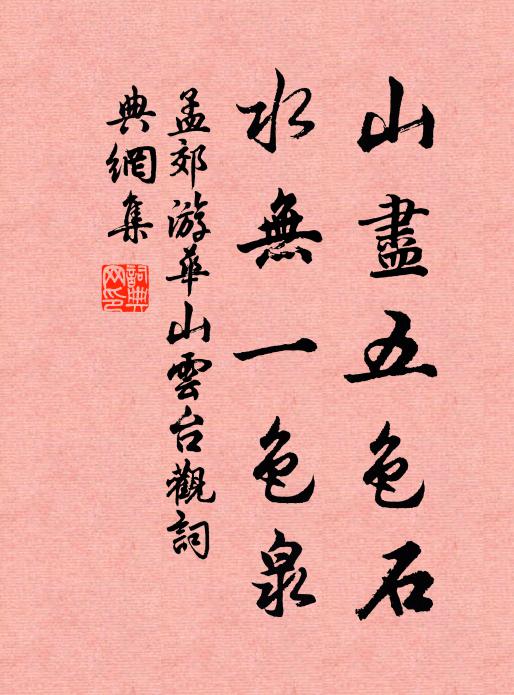 山盡五色石
水無一色泉
孟郊游華山雲台觀詞
典網集
詞典
网印